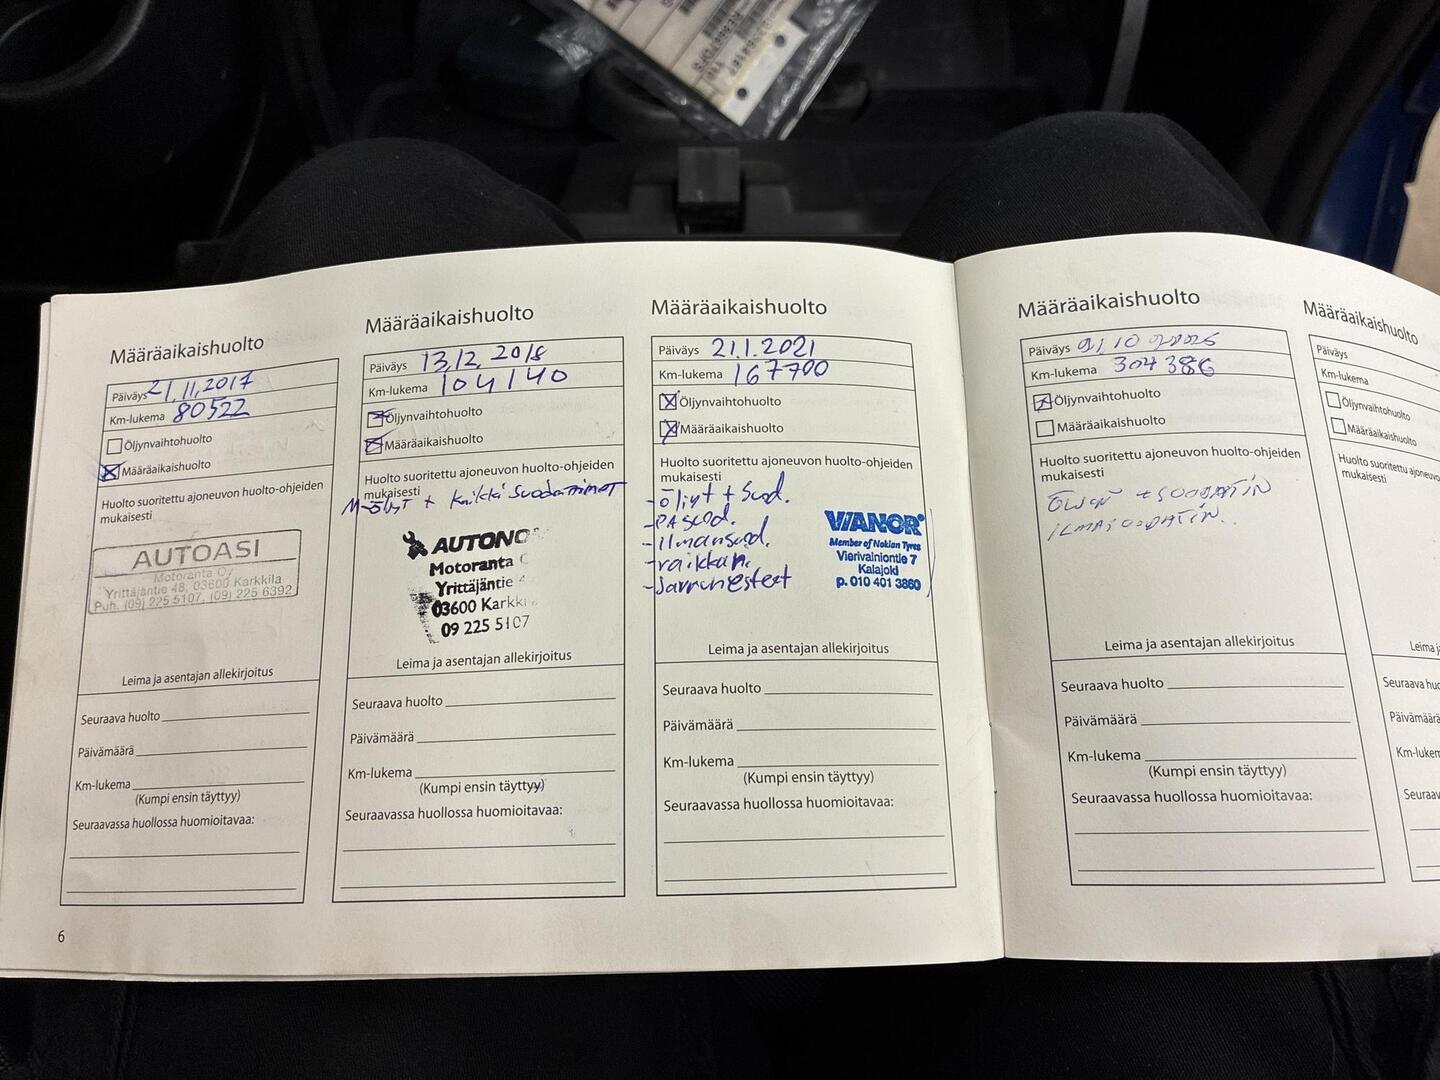 Määräaikaishuolto
Päiväys 21.11.2017
Km-lukema 80522
Öljynvaihtohuolto
Määräaikaishuolto
Huolto suoritettu ajoneuvon huolto-ohjeiden
mukaisesti
AUTOASI
Motoranta Oy
Yrittäjäntie 48, 03600 Karkkila
Puh. (09) 225 5107, (09) 225 6392
Leima ja asentajan allekirjoitus
Seuraava huolto
Päivämäärä
Km-lukema
(Kumpi ensin täyttyy)
Seuraavassa huollossa huomioitavaa:
6
Määräaikaishuolto
Päiväys 13.12.2018
Km-lukema 104140
Öljynvaihtohuolto
Määräaikaishuolto
Huolto suoritettu ajoneuvon huolto-ohjeiden
mukaisesti
M-öljyt + kaikki suodattimet
AUTONO
Motoranta
Yrittäjäntie 4
03600 Karkki
09 225 5107
Leima ja asentajan allekirjoitus
Seuraava huolto
Päivämäärä
Km-lukema
(Kumpi ensin täyttyy)
Seuraavassa huollossa huomioitavaa:
Määräaikaishuolto
Päiväys 21.1.2021
Km-lukema 167700
Öljynvaihtohuolto
Määräaikaishuolto
Huolto suoritettu ajoneuvon huolto-ohjeiden
mukaisesti
-öljyt + suod.
-PAsuod.
-ilmansuod.
-raikkan.
-Jarrunesteet
VIANOR
Member of Nokian Tyres
Vierivainiontie 7
Kalajoki
p. 010 401 3860
Leima ja asentajan allekirjoitus
Seuraava huolto
Päivämäärä
Km-lukema
(Kumpi ensin täyttyy)
Seuraavassa huollossa huomioitavaa:
Määräaikaishuolto
Päiväys 10 2025
Km-lukema 304386
Öljynvaihtohuolto
Määräaikaishuolto
Huolto suoritettu ajoneuvon huolto-ohjeiden
mukaisesti
+ SUODATIN
ILMASUODATIN.
Leima ja asentajan allekirjoitus
Seuraava huolto
Päivämäärä
Km-lukema
(Kumpi ensin täyttyy)
Seuraavassa huollossa huomioitavaa:
Määräaikaishuolto
Päiväys
Km-lukema
Öljynvaihtohuolto
Määräaikaishuolto
Huolto suoritettu
mukaisesti
Leima
Seuraava
Päivämäärä